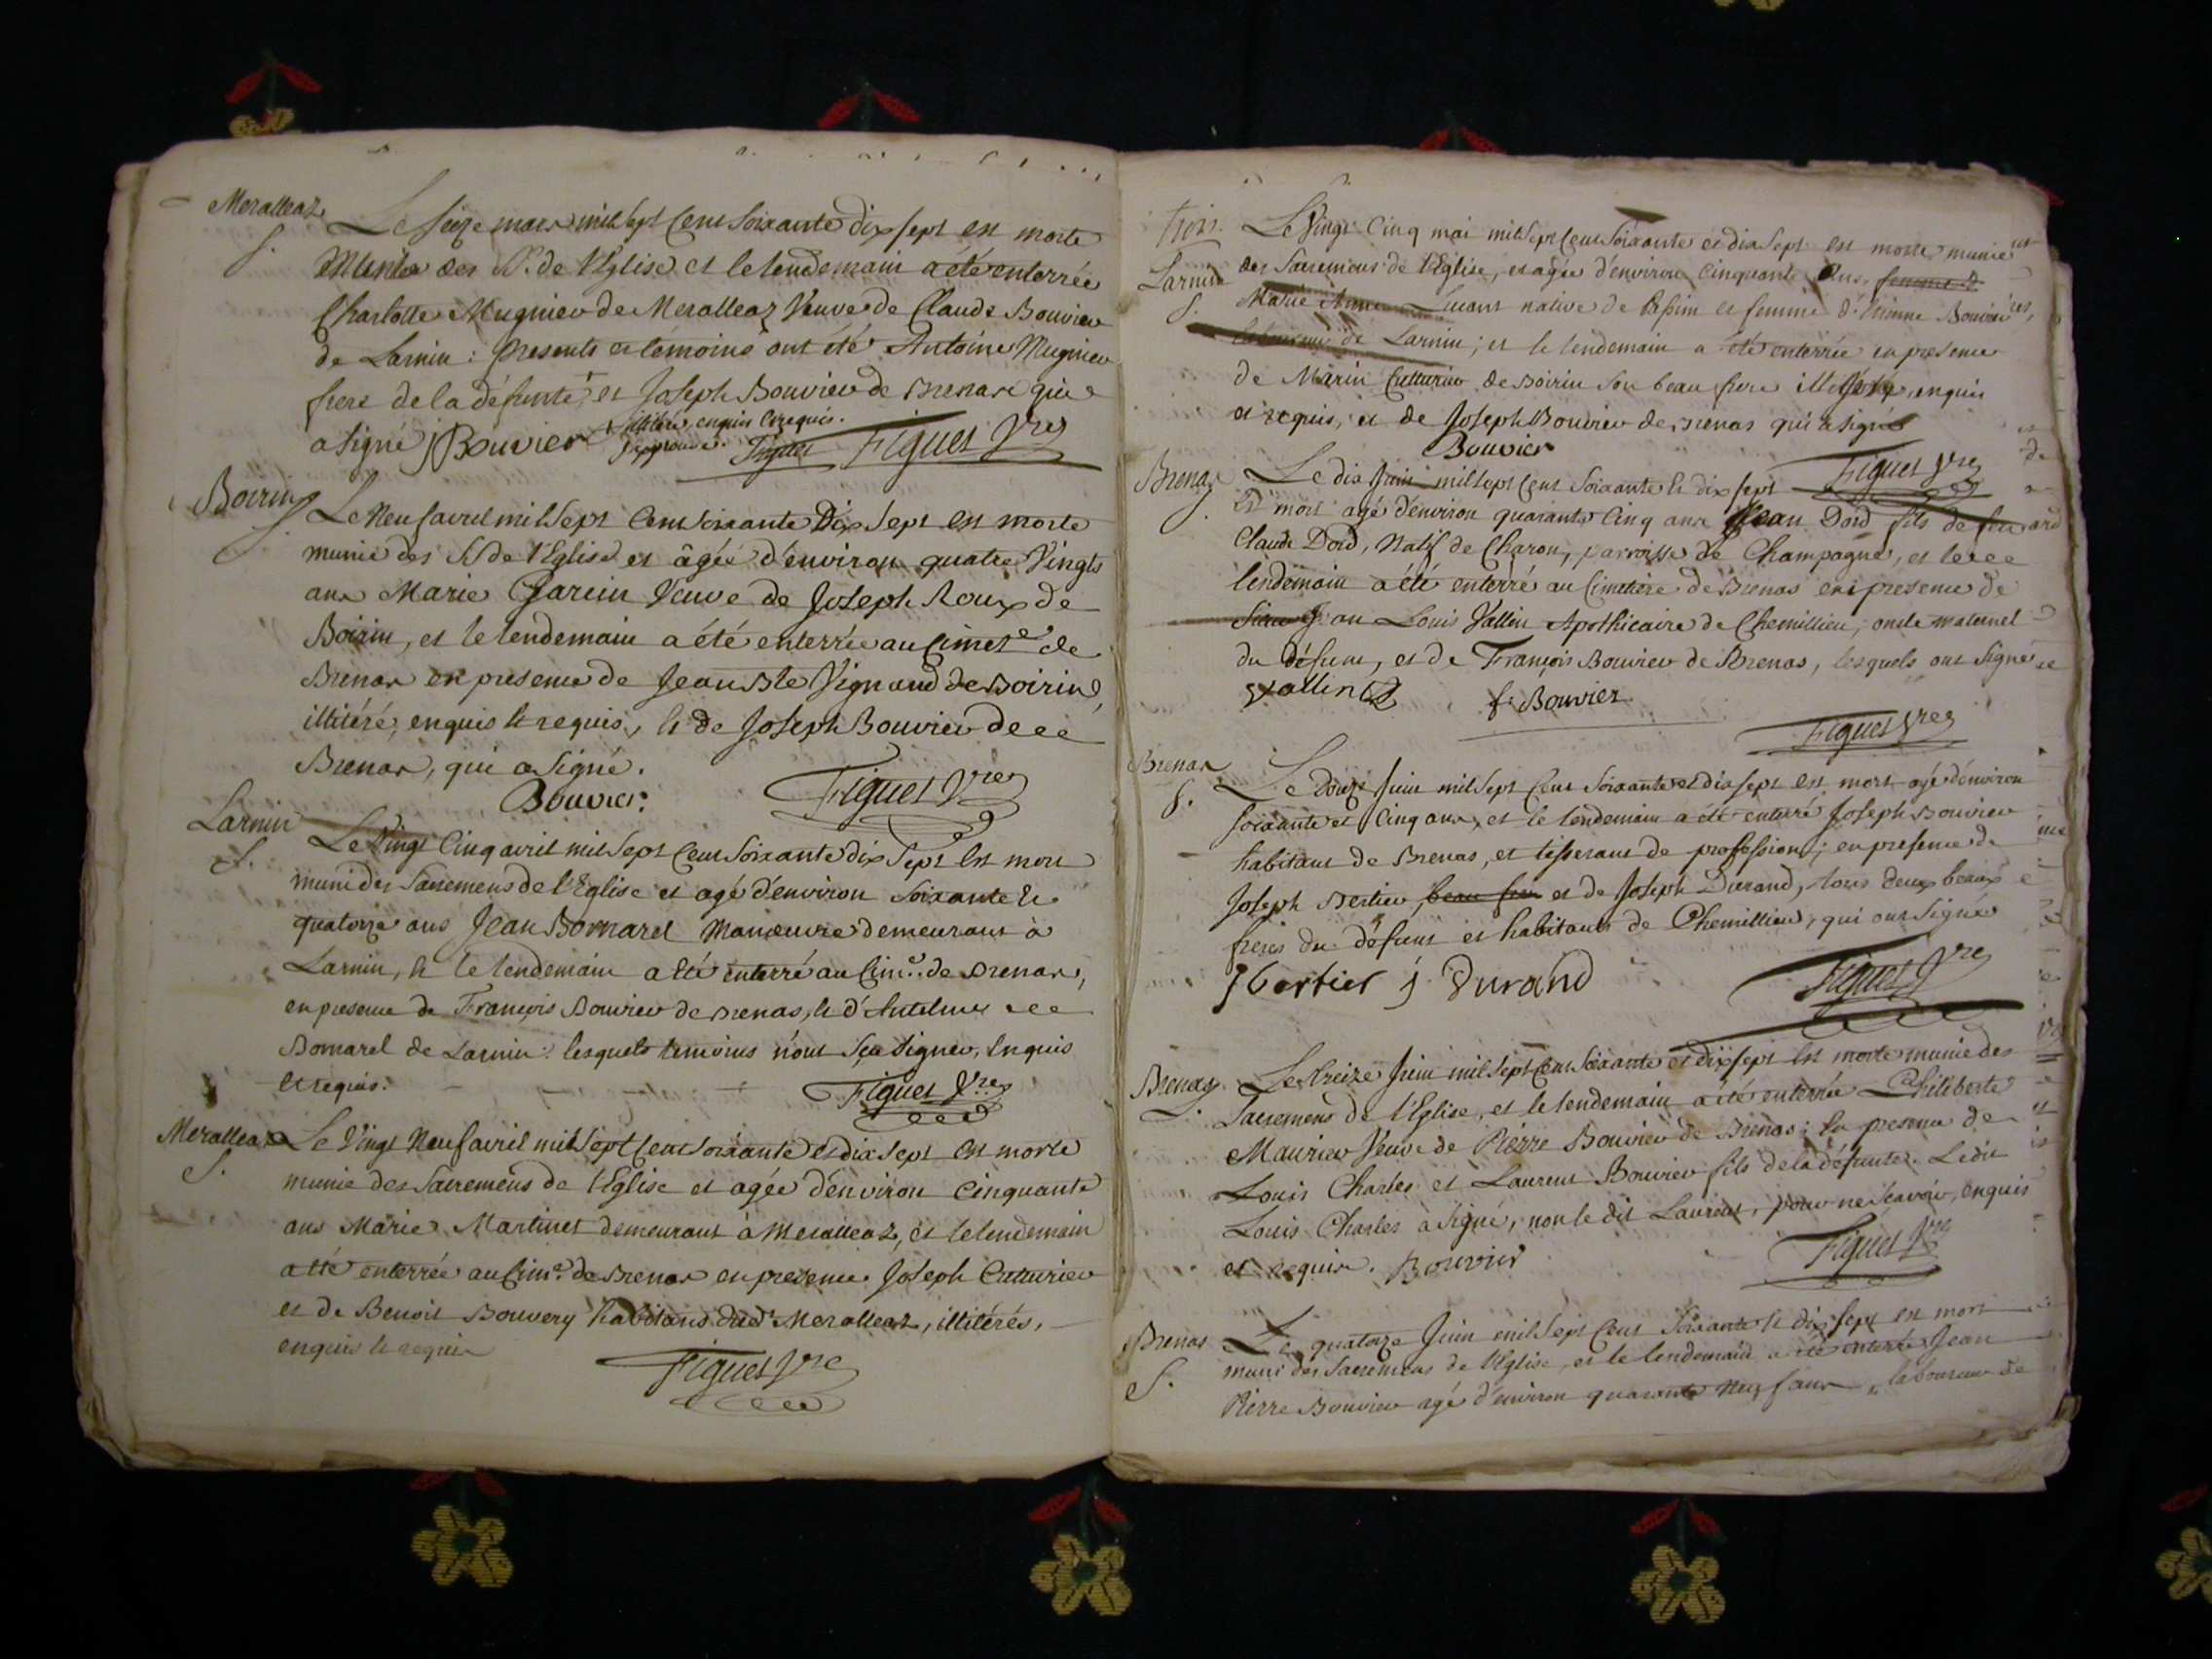 Meralleaz
S.
Le seize mars mil sept cent soixante dix sept est morte
munie des Sts. de l'Eglise et le lendemain a été enterrée
Charlotte Mugnier de Meralleaz Veuve de Claude Bouvier
de Larnin : presents et témoins ont été Antoine Mugnier
frere de la défunte, et Joseph Bouvier de Brenas qui
illitéré, enquis et requis.
a signé J Bouvier J'approuve. Figuet Figuet Vre
Boirin
S.
Le Neuf avril mil sept cent soixante Dix sept est morte
munie des Ss de l'Eglise et âgée d'environ quatre Vingts
ans Marie Garin Veuve de Joseph Roux de
Boirin, et le lendemain a été enterrée au Cimete de
Brenas en presence de Jean Bte Vignand de Boirin,
illitéré, enquis et requis, et de Joseph Bouvier de
Brenas, qui a signé.
Bouvier. Figuet Vre
Larnin
S.
Le Vingt Cinq avril mil sept cent soixante dix sept est mort
muni des Sacremens de l'Eglise et agé d'environ soixante et
quatorze ans Jean Bornarel Manœuvre demeurant à
Larnin, et le lendemain a été enterré au Cime. de Brenas,
en presence de François Bouvier de Brenas, et d'Antelme
Bornarel de Larnin : lesquels temoins n'ont sçu signer, enquis
et requis. Figuet Vre
Meralleaz
S.
Le Vingt Neuf avril mil sept cent soixante et dix sept est morte
munie des Sacremens de l'Eglise et agée d'environ cinquante
ans Marie Martinet demeurant à Meralleaz, et le lendemain
a été enterrée au Cime. de Brenas en presence Joseph Cutturier
et de Benoit Bouvery habitans dud. Meralleaz, illitérés,
enquis et requis
Figuet Vre
trois.
Larnin
S.
Le Vingt Cinq mai mil sept cent soixante et dix sept est morte munie
des Sacremens de l'Eglise, et agée d'environ cinquante ans, femme d
Marie Anne native de et femme d'Etienne Bouvier
de Larnin ; et le lendemain a été enterrée en presence
de Marin Cutturier de Boirin son beau frere illitéré, enquis
et requis, et de Joseph Bouvier de Brenas qui a signé
Bouvier Figuet Vre
Brenas
S.
Le dix Juin mil sept cent soixante et dix sept
est mort agé d'environ quarante Cinq ans Jean Dord fils de feu
Claude Dord, Natif de Charon, parroisse de Champagne, et le
lendemain a été enterré au Cimetiere de Brenas en presence de
Sieur Jean Louis Vallin Apothicaire de Chemillieu, oncle maternel
du défunt, et de François Bouvier de Brenas, lesquels ont signé
Vallin f. Bouvier
Figuet Vre
Brenas
S.
Le douze Juin mil sept cent soixante et dix sept est mort agé d'environ
soixante et Cinq ans, et le lendemain a été enterré Joseph Bouvier
habitant de Brenas, et tisserant de profession ; en presence de
Joseph Bertier, beau frere et de Joseph Durand, tous deux beaux
freres du défunt et habitants de Chemillieu, qui ont signé
J bertier j. Durand Figuet Vre
Brenas
S.
Le treize Juin mil sept cent soixante et dix sept est morte munie des
Sacremens de l'Eglise, et le lendemain a été enterrée Philiberte
Maurier Veuve de Pierre Bouvier de Brenas ; En presence de
Louis Charles et Laurent Bouvier fils de la défunte. Ledit
Louis Charles a signé, non le dit Laurent, pour ne sçavoir, enquis
et requis. Bouvier Figuet Vre
Brenas
S.
Le quatorze Juin mil sept cent soixante et dix sept est mort
muni des Sacremens de l'Eglise, et le lendemain a été enterré Jean
Pierre Bouvier agé d'environ quarante Neuf ans, laboureur de